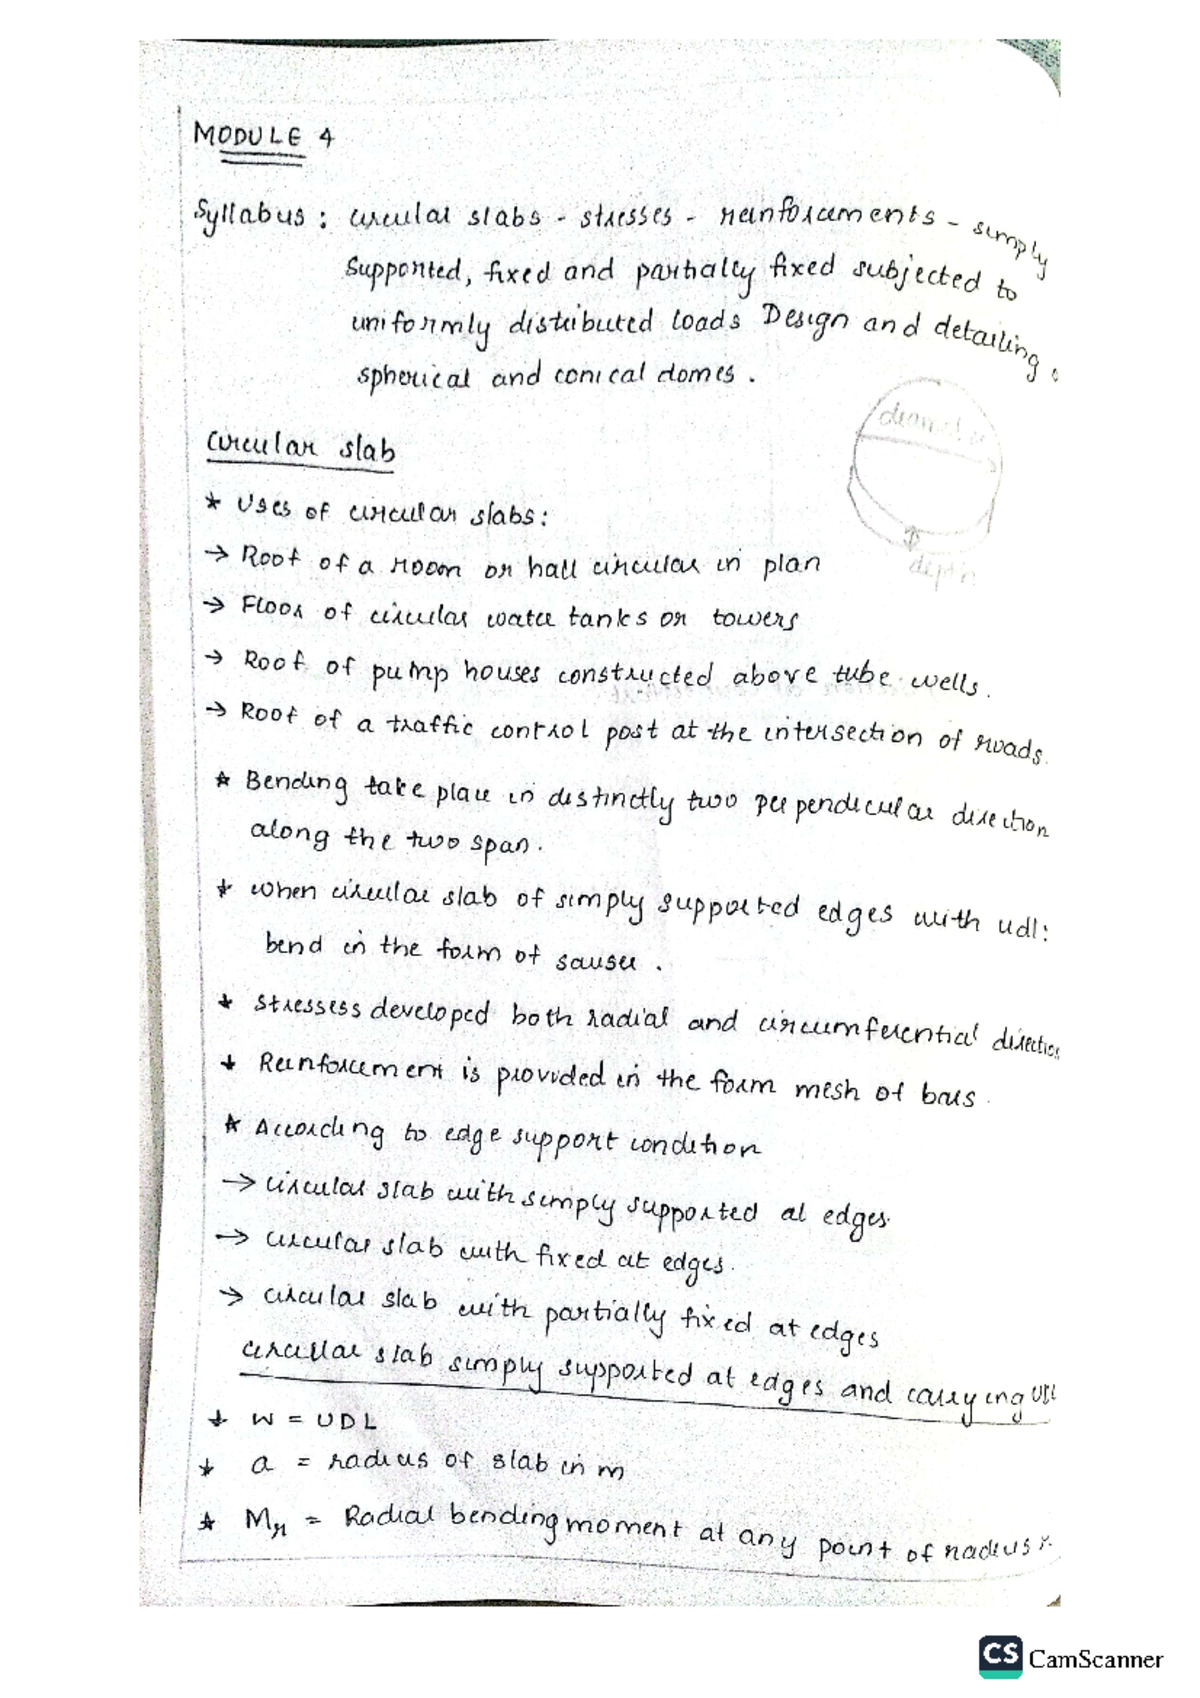 MODULE 4
Syllabus : circular slabs - stresses - reinforcements - simply
Supported, fixed and partially fixed subjected to
uniformly distributed loads Design and detailing
spherical and conical domes .
Circular slab
* Uses of circular slabs :
→ Roof of a room or hall circular in plan
→ Floor of circular water tanks or towers
→ Roof of pump houses constructed above tube wells.
→ Roof of a traffic control post at the intersection of roads.
* Bending take place in distinctly two perpendicular direction
along the two span.
* when circular slab of simply supported edges with udl :
bend in the form of sauser .
* Stressess developed both radial and circumferential direction
* Reinforcement is provided in the form mesh of bars .
* According to edge support condition
→ circular slab with simply supported at edges.
→ circular slab with fixed at edges.
→ circular slab with partially fixed at edges
circular slab simply supported at edges and carrying UDL
* W = UDL
* a = radius of slab in m
* Mr = Radial bending moment at any point of radius r.
depth
CS CamScanner